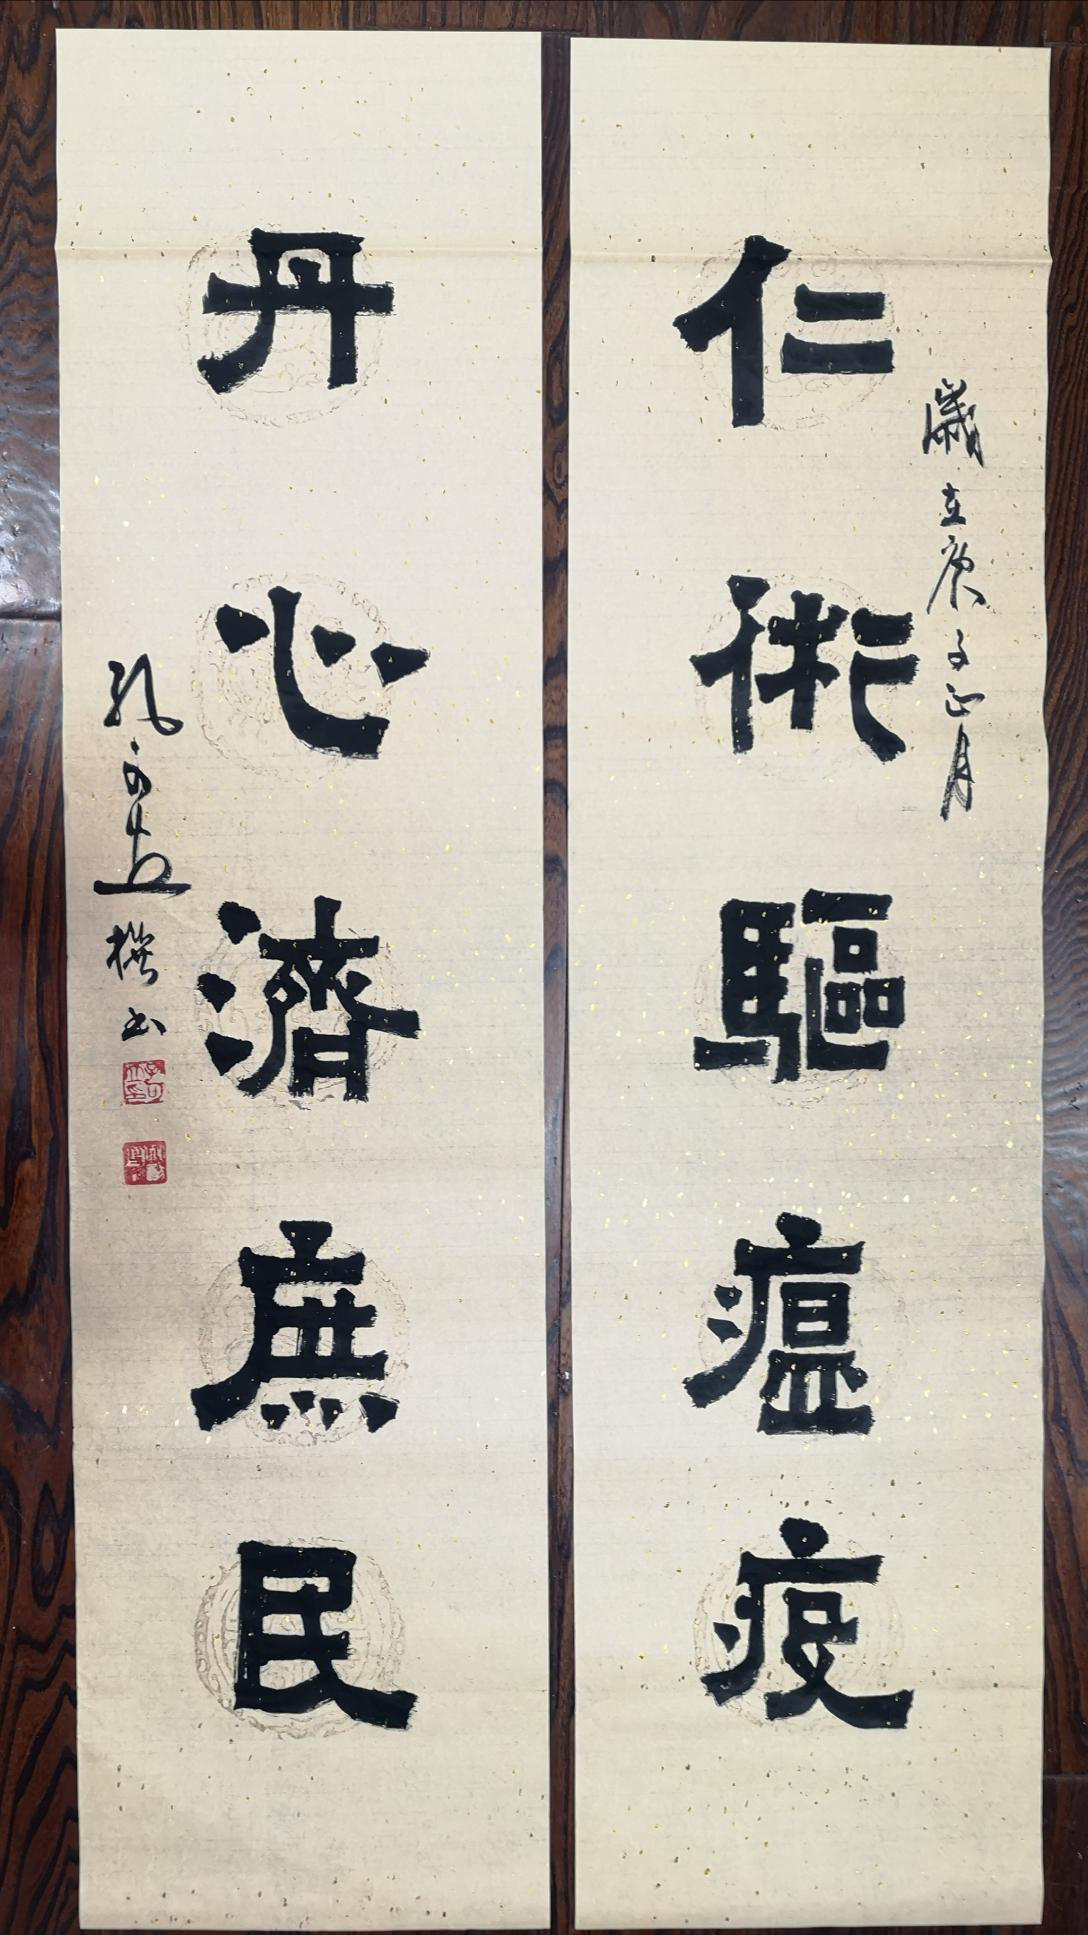 歲在庚子正月
仁術驅瘟疫
丹心濟庶民
孔可立撰书